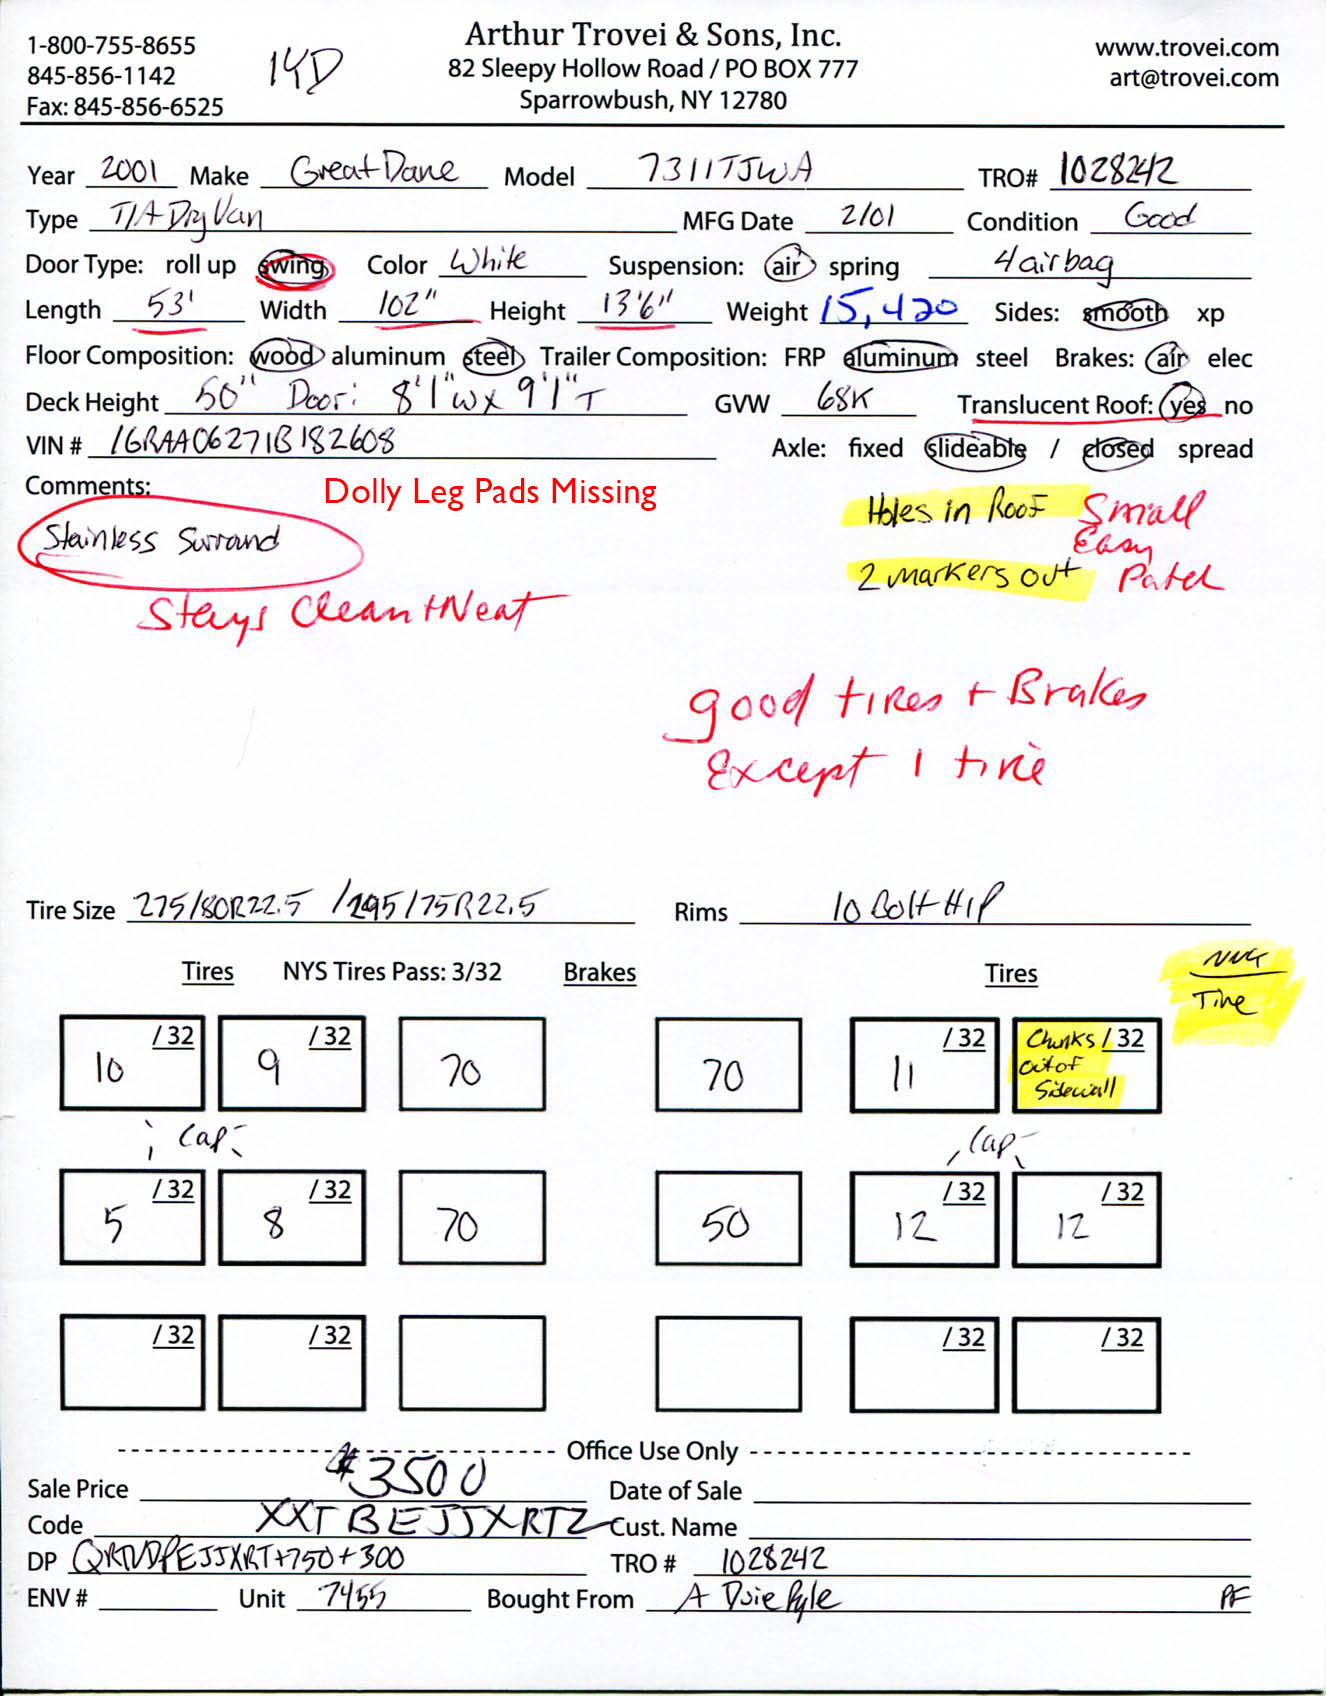 1-800-755-8655
845-856-1142
Fax: 845-856-6525
14D
Arthur Trovei & Sons, Inc.
82 Sleepy Hollow Road / PO BOX 777
Sparrowbush, NY 12780
www.trovei.com
art@trovei.com
Year 2001 Make Great Dane Model 7311TJWA TRO# 1028242
Type T/A Dry Van MFG Date 2/01 Condition Good
Door Type: roll up swing Color White Suspension: air spring 4 airbag
Length 53' Width 102" Height 13'6" Weight 15,420 Sides: smooth xp
Floor Composition: wood aluminum steel Trailer Composition: FRP aluminum steel Brakes: air elec
Deck Height 50" Door: 8'1"W x 9'1"T GVW 68K Translucent Roof: yes no
VIN # 1GRAA06271B182608 Axle: fixed slideable / closed spread
Comments: Dolly Leg Pads Missing
Holes in Roof Small Easy Patch
Stainless Surround
2 markers out
Stays Clean + Neat
good tires + Brakes
Except 1 tire
Tire Size 275/80R22.5 / 295/75R22.5 Rims 10 Bolt H/P
Tires NYS Tires Pass: 3/32 Brakes Tires
Tire
10 /32 9 /32 70 70 11 /32 Chunks out of Sidewall /32
Cap Cap
5 /32 8 /32 70 50 12 /32 12 /32
/32 /32 /32 /32
Office Use Only
Sale Price $3500 Date of Sale
Code XXTBEJJXRTZ Cust. Name
DP +750+300 TRO # 1028242
ENV # Unit 7455 Bought From A Duie Pyle PF